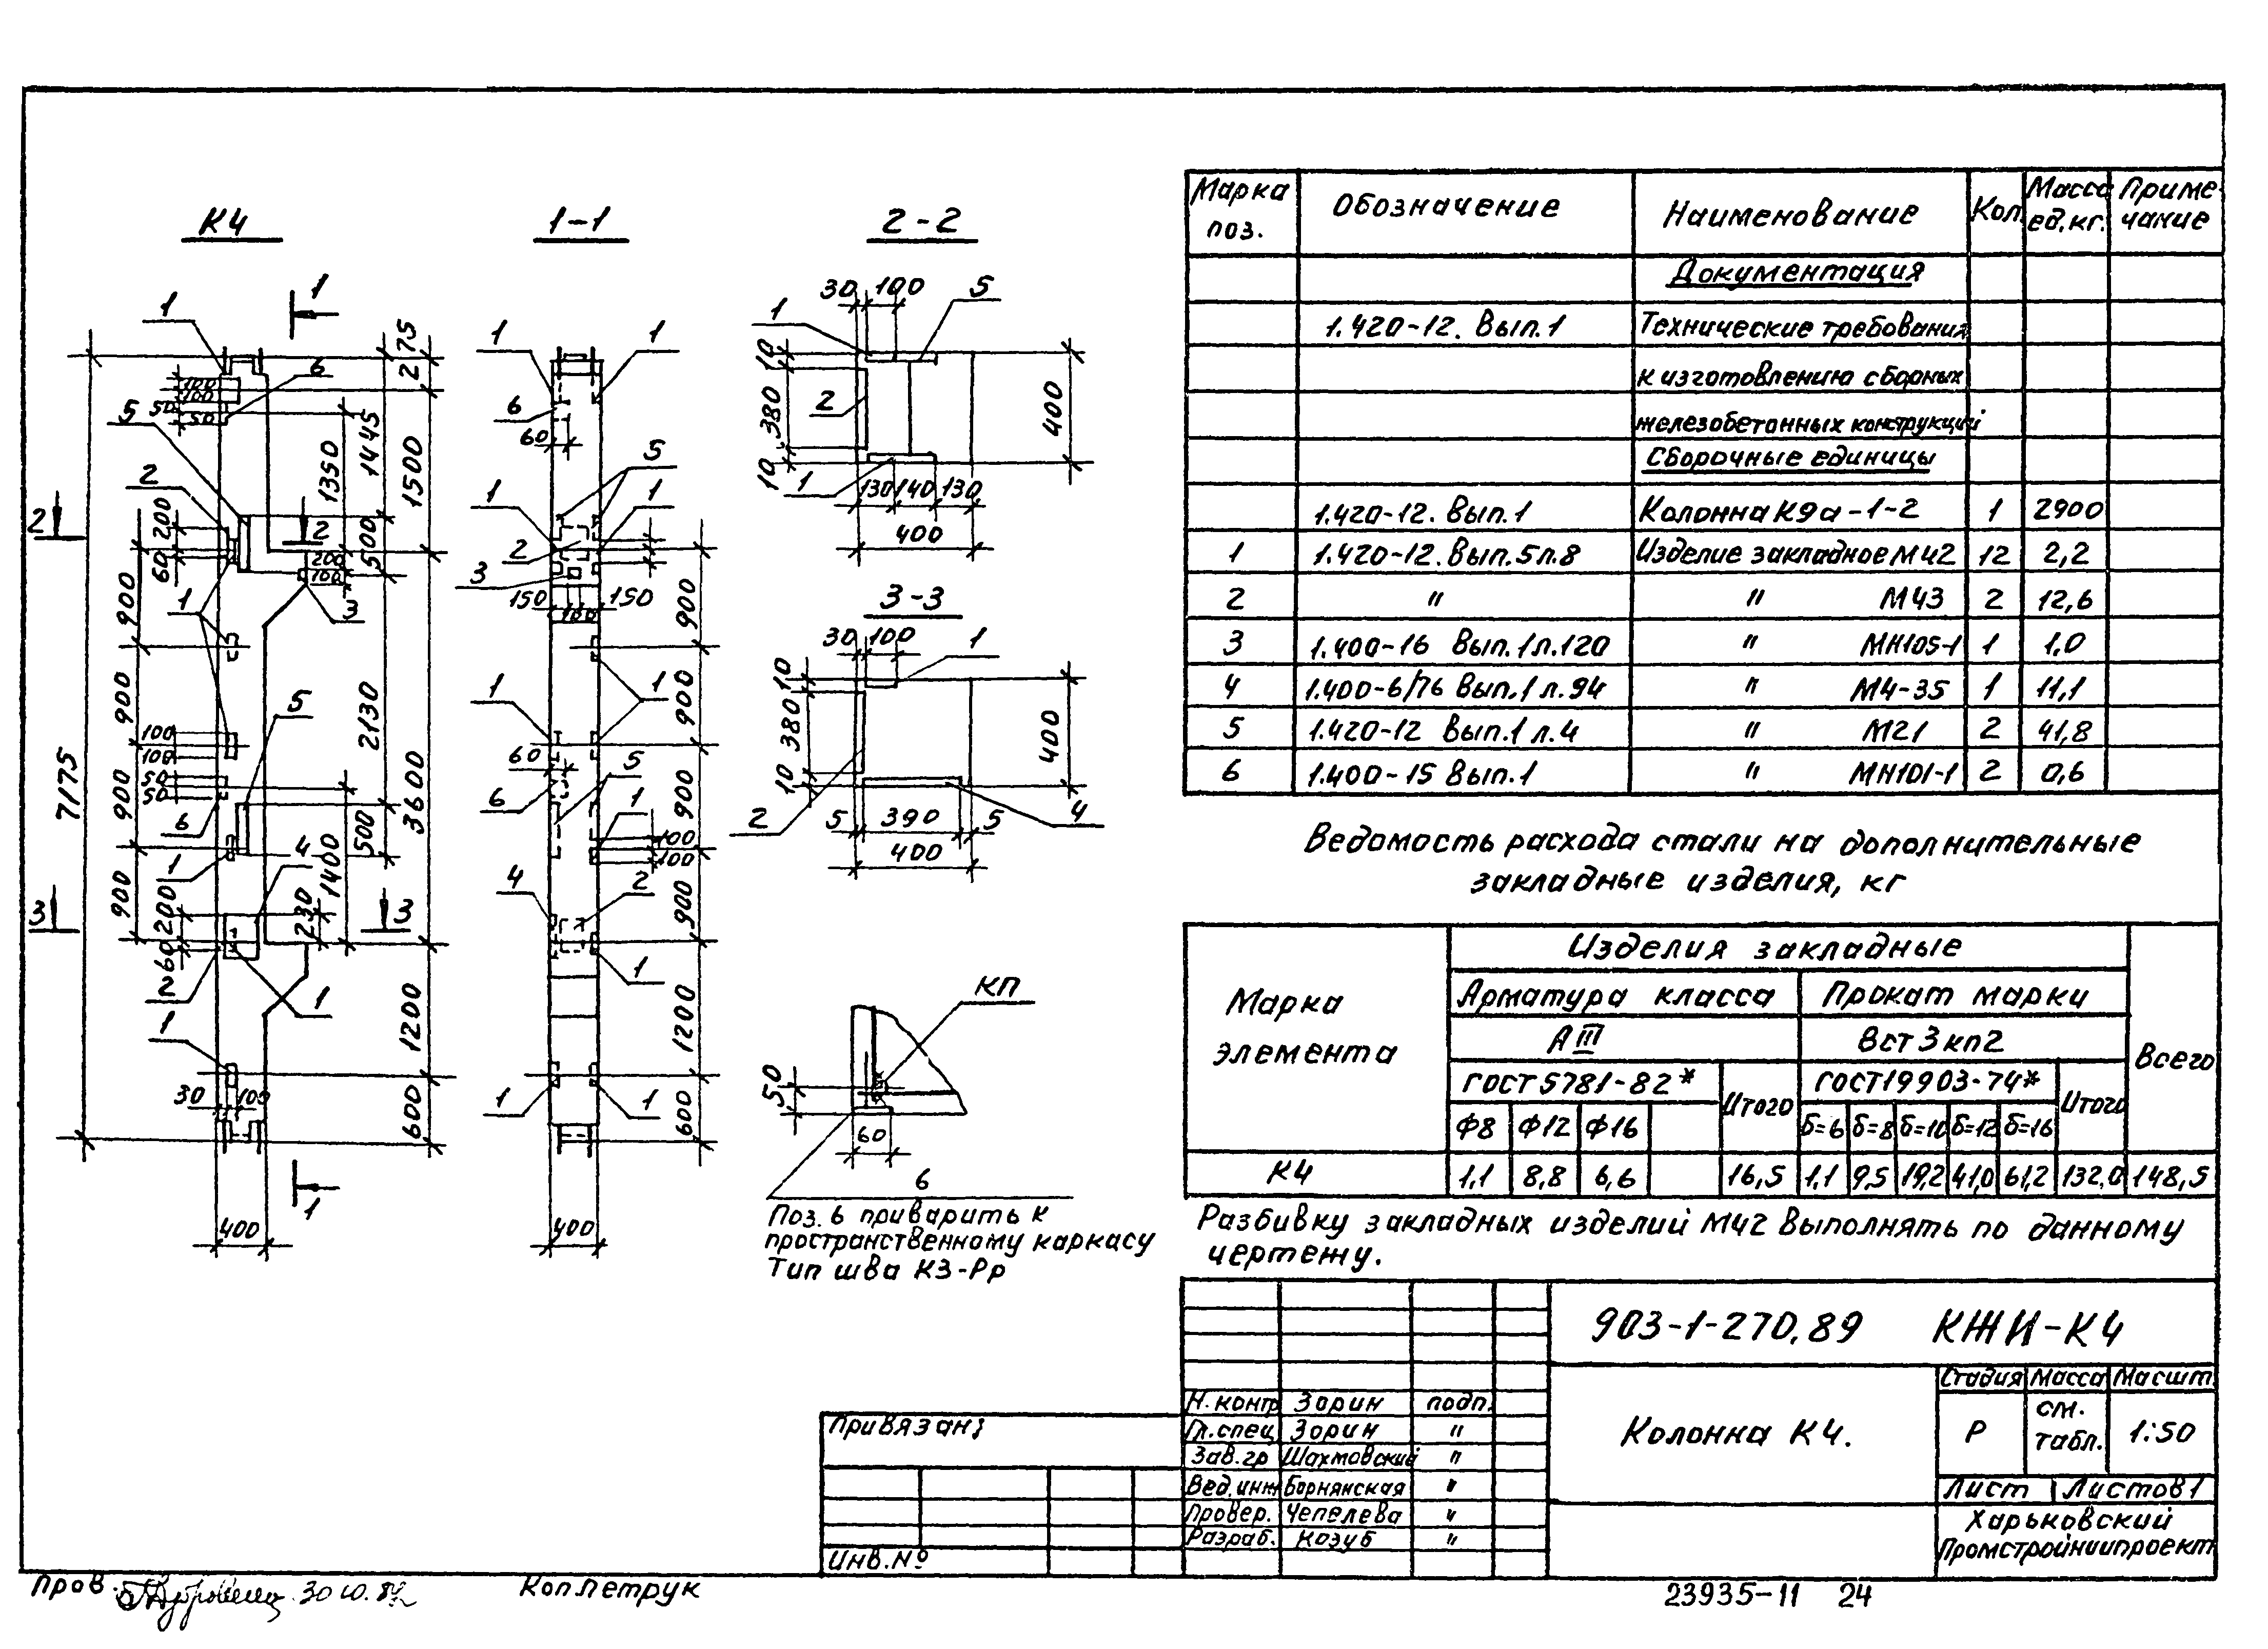 К4
1-1
2-2
3-3
1
1
6
5
2
2
2
3
1
5
6
1
4
3
3
2
1
1
1
100
100
50
50
200
60
900
900
100
100
50
50
900
900
200
60
30
100
7175
1350
1445
200
100
500
2130
500
1400
230
275
1500
3600
1200
600
400
1
1
6
60
5
1
1
1
2
3
150
100
150
1
1
60
6
5
1
100
100
4
2
1
1
1
900
900
900
900
1200
600
400
30
100
5
1
10
380
10
2
1
130
140
130
400
400
30
100
1
10
380
10
2
5
390
5
4
400
400
КП
50
60
6
Поз. 6 приварить к
пространственному каркасу
Тип шва К3-Рр
Марка поз. Обозначение Наименование Кол. Масса ед.кг. Примечание
Документация
1.420-12. Вып.1 Технические требования
к изготовлению сборных
железобетонных конструкций
Сборочные единицы
1.420-12. Вып.1 Колонна К9а-1-2 1 2900
1 1.420-12. Вып.5 л.8 Изделие закладное М42 12 2,2
2 " " М43 2 12,6
3 1.400-16 Вып.1 л.120 " МН105-1 1 1,0
4 1.400-6/76 Вып.1 л.94 " М4-35 1 11,1
5 1.420-12 Вып.1 л.4 " М21 2 41,8
6 1.400-15 Вып.1 " МН101-1 2 0,6
Ведомость расхода стали на дополнительные
закладные изделия, кг
Марка элемента
Изделия закладные
Арматура класса Прокат марки
АIII Вст3кп2
Всего
ГОСТ 5781-82* Итого ГОСТ 19903-74* Итого
Ф8 Ф12 Ф16 δ=6 δ=8 δ=10 δ=12 δ=16
К4 1,1 8,8 6,6 16,5 1,1 9,5 19,2 41,0 61,2 132,0 148,5
Разбивку закладных изделий М42 выполнять по данному
чертежу.
903-1-270.89 КЖИ-К4
Колонна К4.
Стадия Масса Масшт.
Р см. табл. 1:50
Лист Листов 1
Харьковский
Промстройниипроект
Н. контр Зорин подп.
Гл.спец Зорин "
Зав.гр Шахмовский "
Вед.инж Борнянская "
Провер. Чепелева "
Разраб. Козуб "
Привязан:
Инв.№
Пров.
Коп. Петрук
23935-11 24